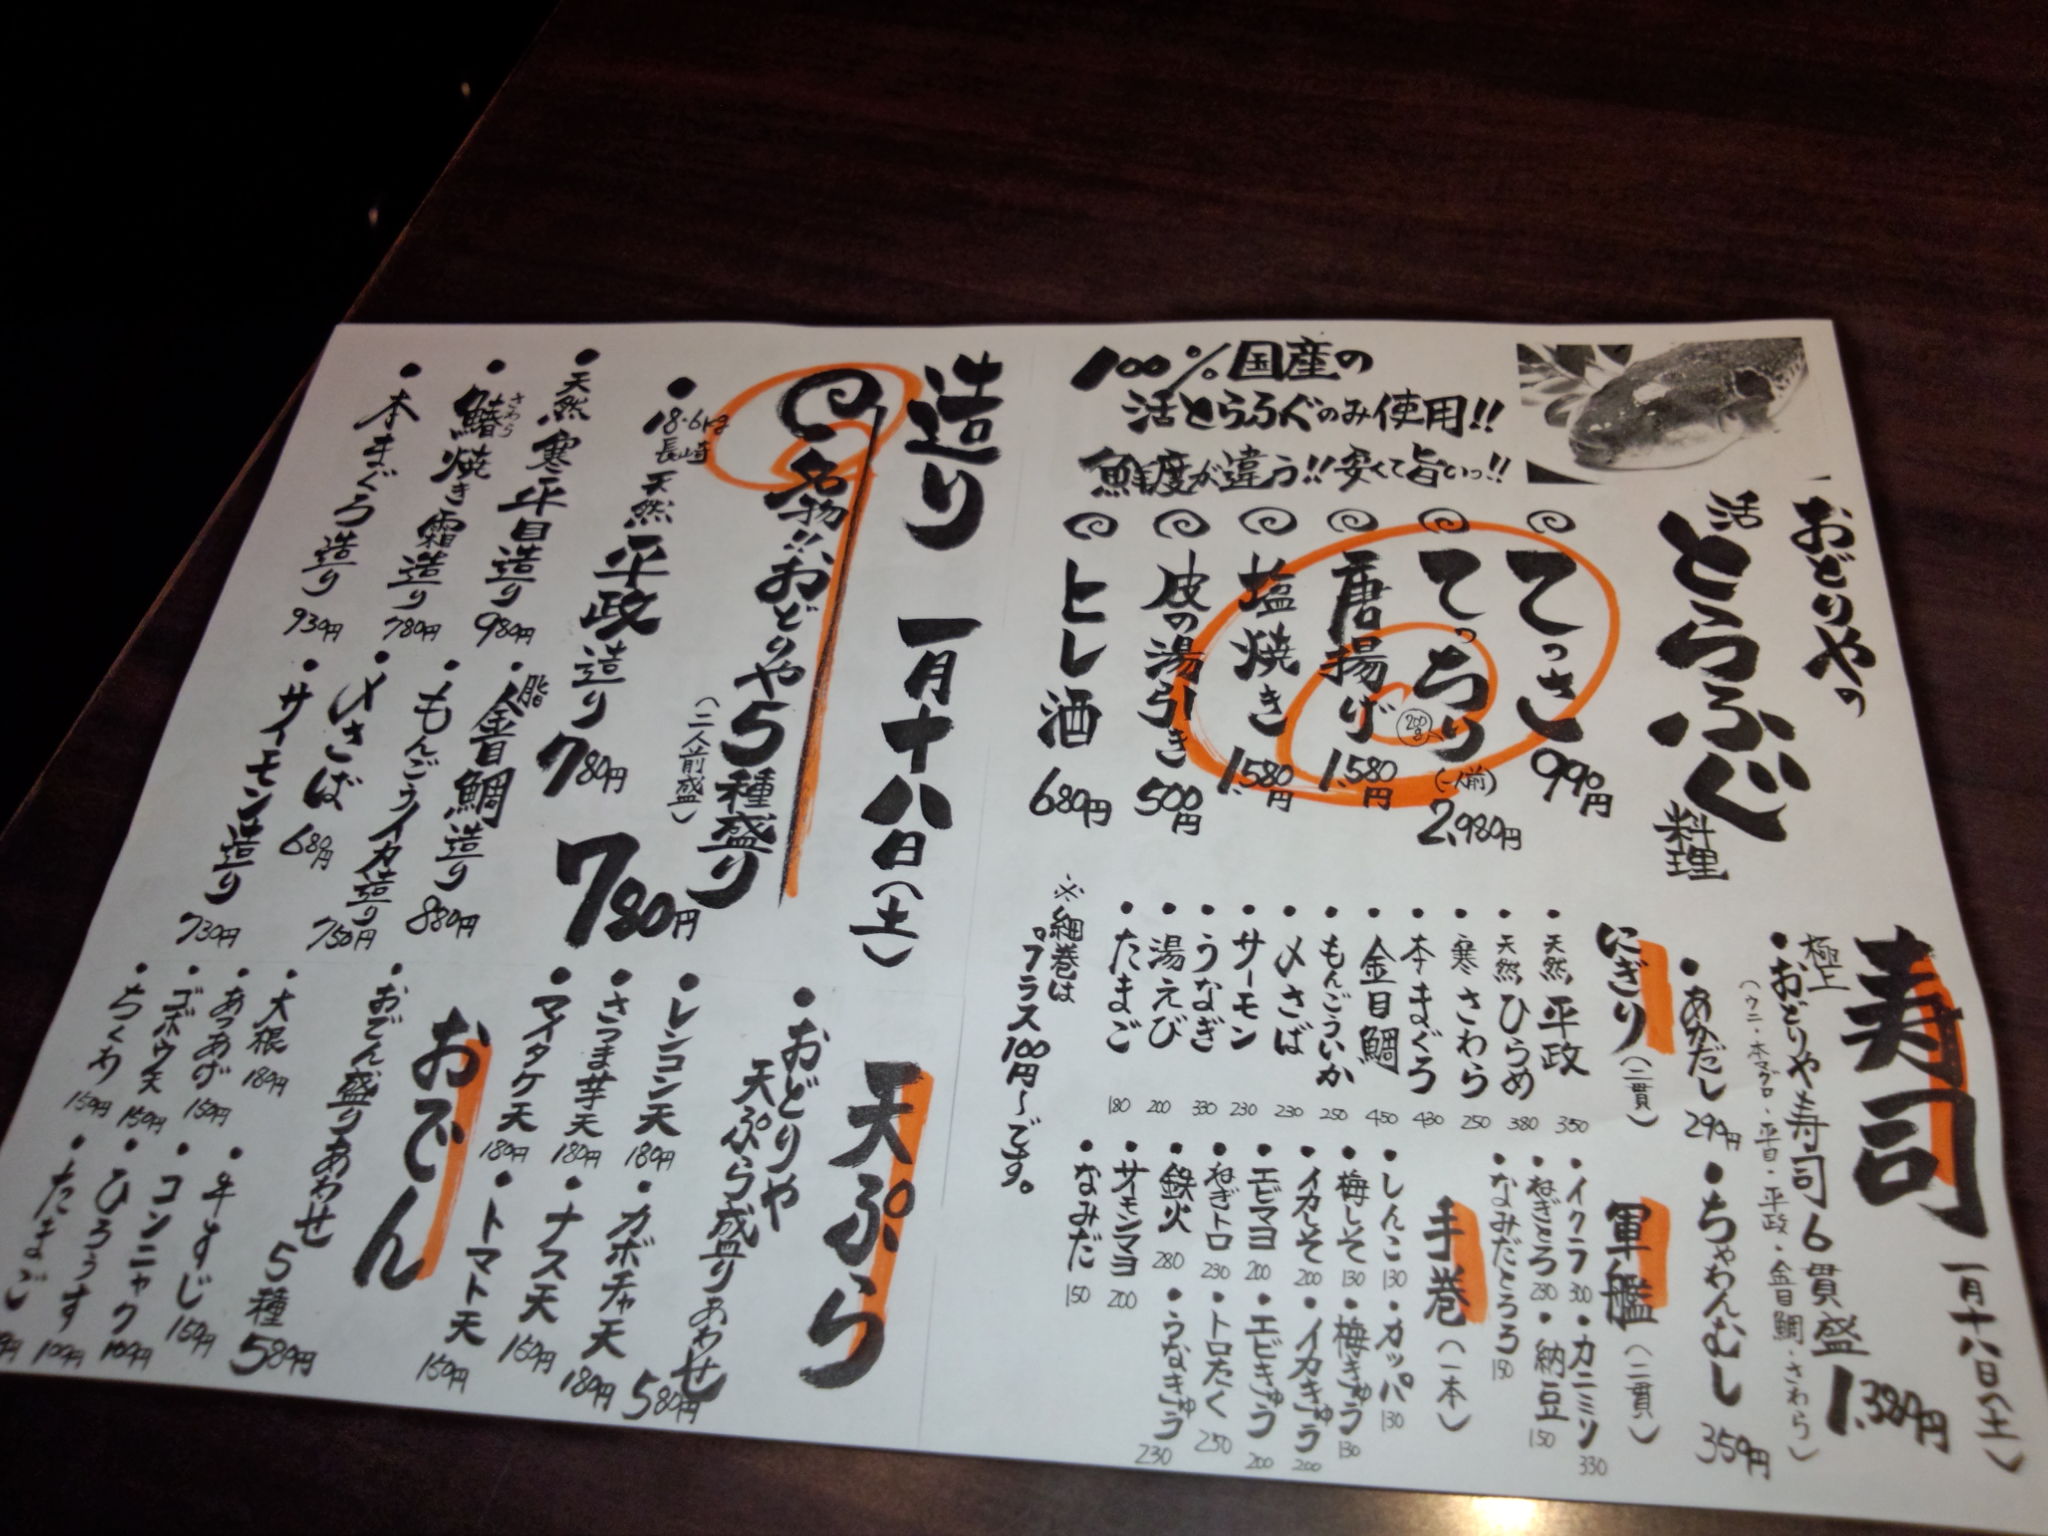 おどりやの
活とらふぐ料理
100%国産の
活とらふぐのみ使用!!
鮮度が違う!!安くて旨いっ!!
てっさ 990円
てっちり (一人前) 2,980円
唐揚げ 1,580円
塩焼き 1,580円
皮の湯引き 500円
ヒレ酒 680円
寿司 一月十八日(土)
極上
・おどりや寿司6貫盛 1,380円
(ウニ・本マグロ・平目・平政・金目鯛・さわら)
・あかだし 290円 ・ちゃわんむし 350円
にぎり(二貫)
・天然平政 350
・天然ひらめ 380
・寒さわら 250
・本まぐろ 430
・金目鯛 450
・もんごういか 250
・〆さば 230
・サーモン 230
・うなぎ 330
・湯えび 200
・たまご 180
軍艦(二貫)
・イクラ 300 ・カニミソ 330
・ねぎとろ 230 ・納豆 150
・なみだとろろ 150
手巻(一本)
・しんこ 130 ・カッパ 130
・梅しそ 130 ・梅きゅう 130
・イカしそ 200 ・イカきゅう 200
・エビマヨ 200 ・エビきゅう 200
・ねぎトロ 230 ・トロたく 250
・鉄火 280 ・うなきゅう 230
・サーモンマヨ 200
・なみだ 150
※細巻は
プラス100円〜です。
造り 一月十八日(土)
名物!!おどりや5種盛り
(二人前盛) 780円
・18.6kg 長崎 天然平政造り 780円
・天然寒平目造り 980円
・鰆焼き霜造り 780円
さわら
・本まぐろ造り 930円
・脂金目鯛造り 880円
・もんごうイカ造り 750円
・〆さば 680円
・サーモン造り 730円
天ぷら
・おどりや
天ぷら盛りあわせ 580円
・レンコン天 180円 ・カボチャ天 180円
・さつま芋天 180円 ・ナス天 150円
・マイタケ天 180円 ・トマト天 150円
おでん
・おでん盛りあわせ 5種 580円
・大根 180円 ・牛すじ 150円
・あつあげ 150円 ・コンニャク 100円
・ゴボウ天 150円 ・ひろうす 100円
・ちくわ 150円 ・たまご